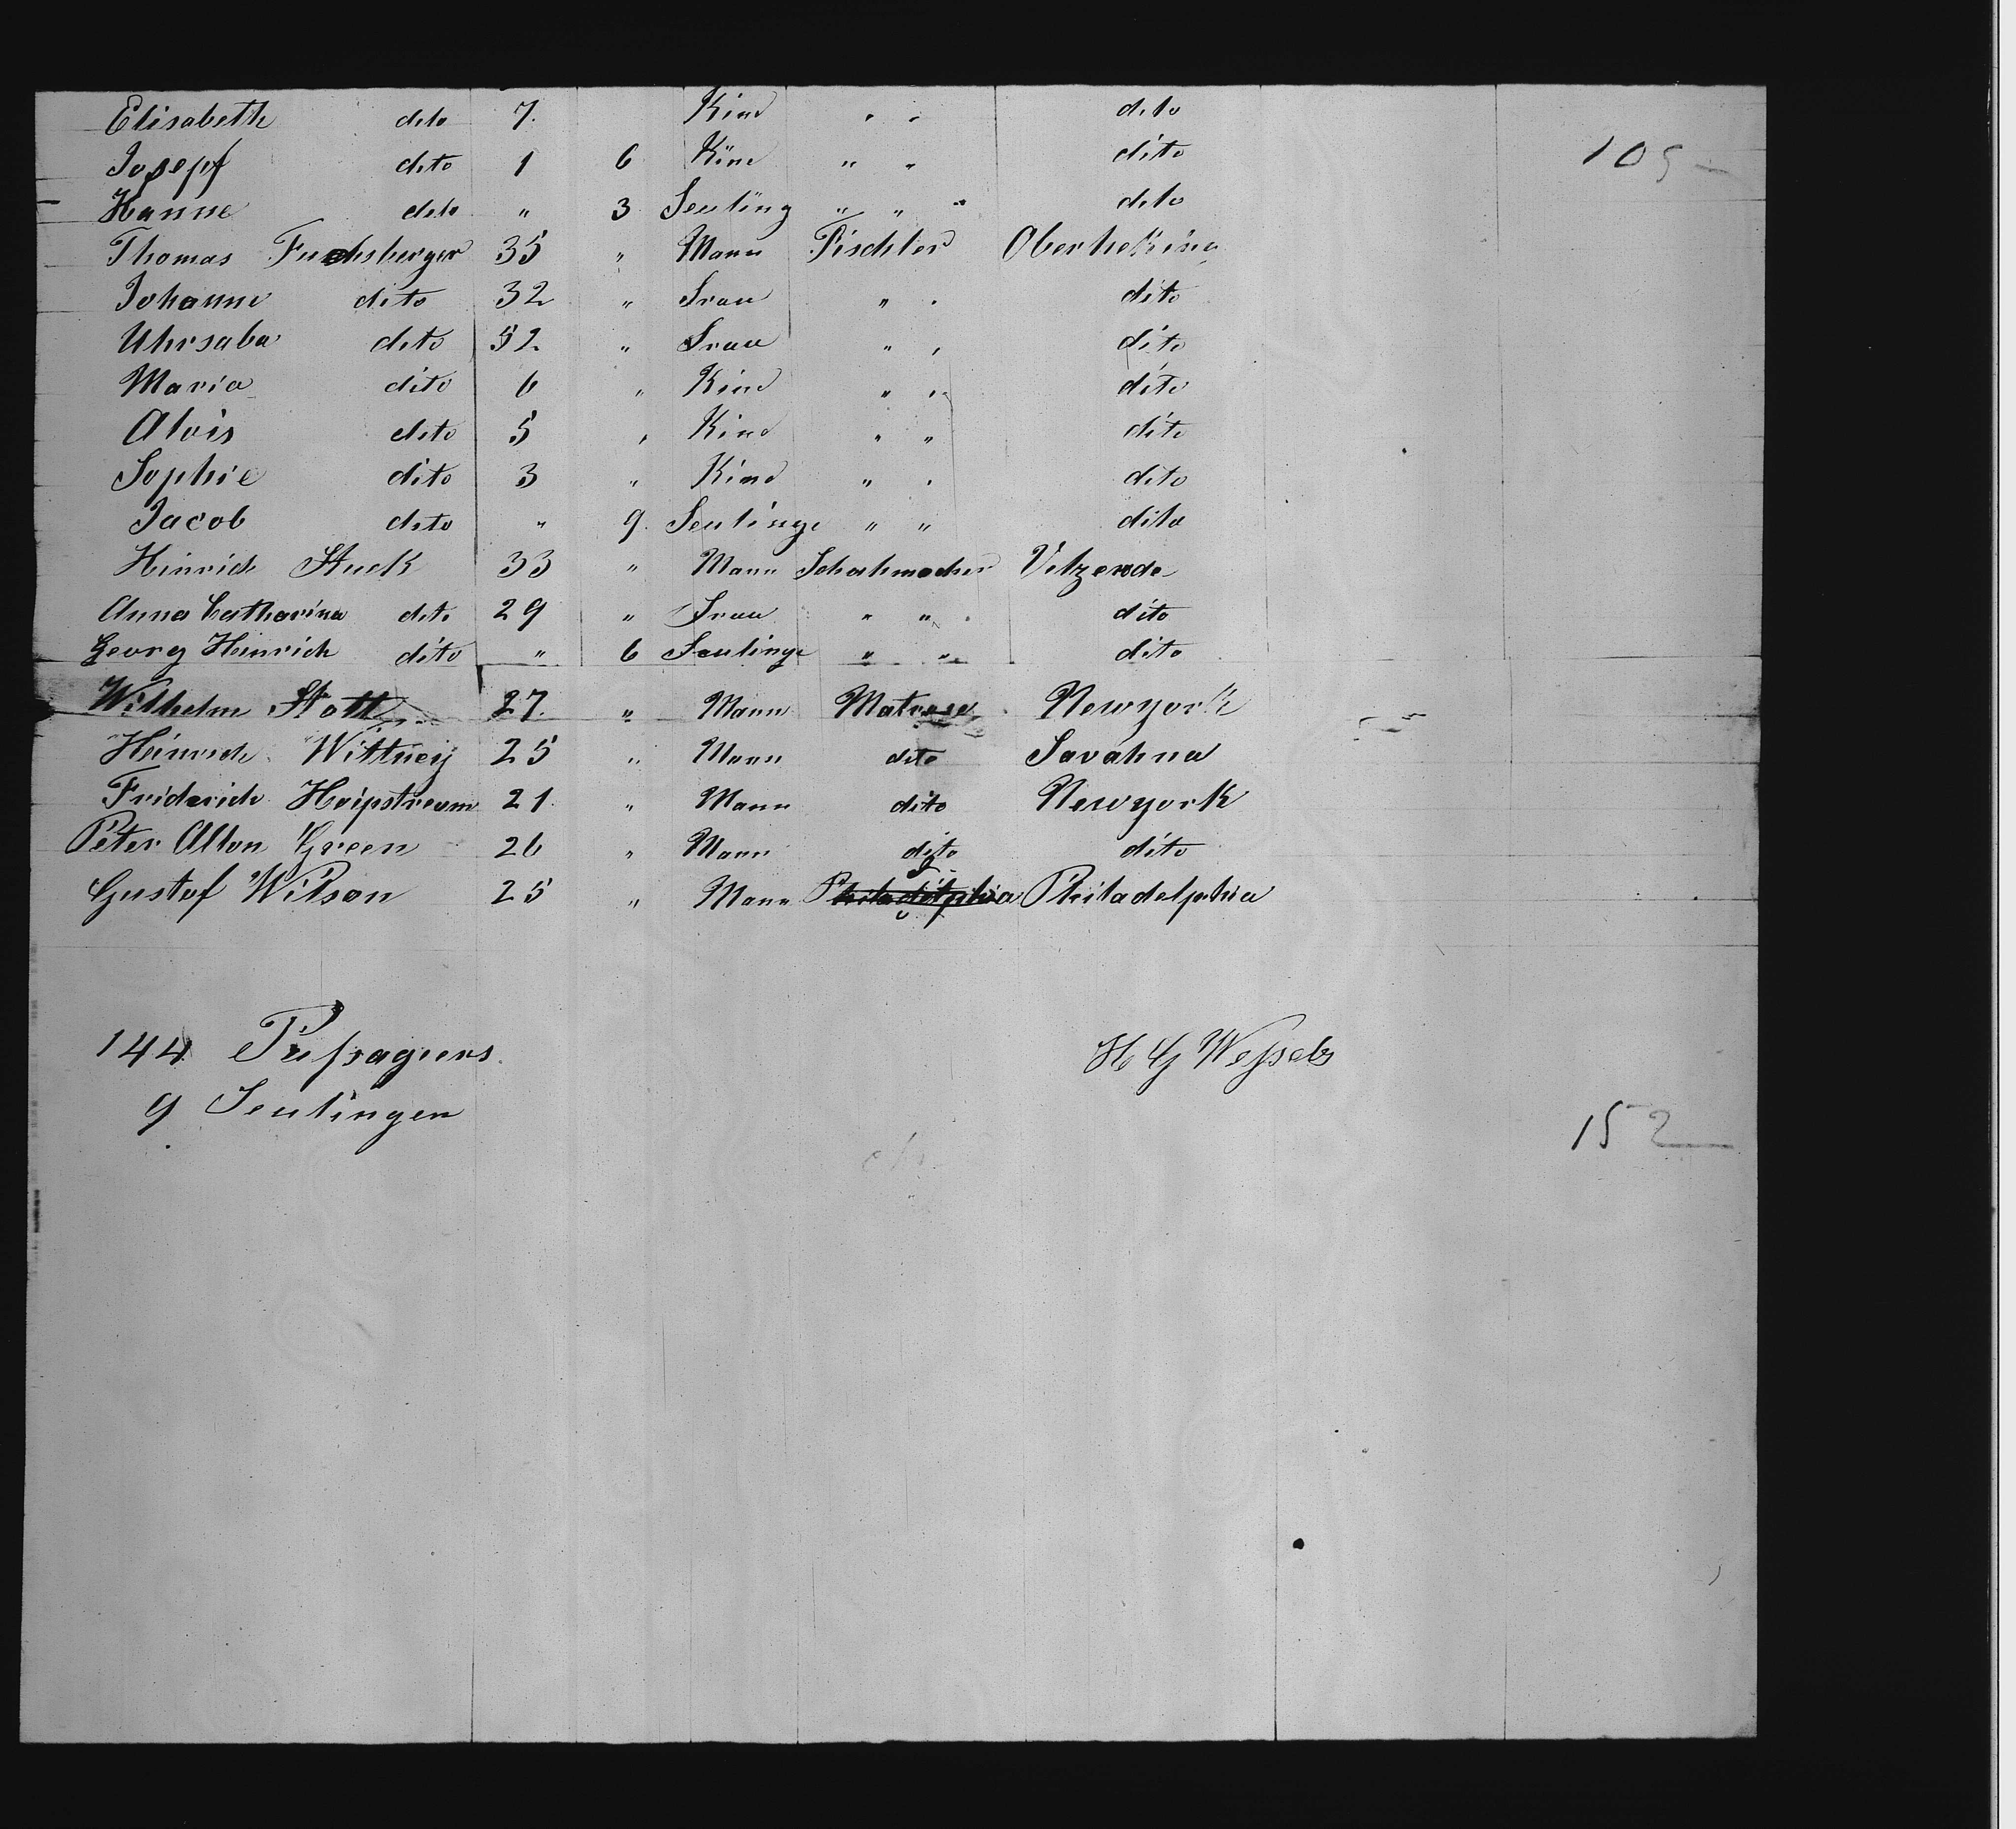 Elisabeth dito 7. Kind " " dito
Josepf dito 1 6 Kind " " dito 105
Hanne dito " 3 Seuling " " " dito
Thomas Fuchsberger 35 " Mann Tischler
Johanne dito 32 " Frau " " dito
Uhrsaba dito 52 " Frau " " dito
Maria dito 6 " Kind " " dito
Alois dito 5 " Kind " " dito
Sophie dito 3 " Kind " " dito
Jacob dito " 9. Seulinge " " dito
Hinrich Stuck 33 " Mann Schuhmacher
Anna Catharina dito 29 " Frau " " dito
Georg Heinrich dito " 6 Seulinge " " dito
Wilhelm Stott 27. " Mann Matrose Newyork
Heinrich Wittney 25 " Mann dito Savahna
Friderich 21 " Mann dito Newyork
Peter Alton Green 26 " Mann dito dito
Gustaf Wilson 25 " Mann Philadelphia Philadelphia
144 H G Wessels
9 Seulingen
152